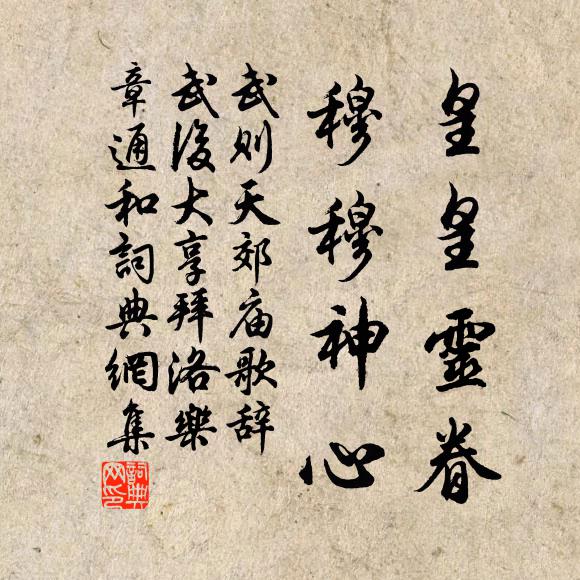 皇皇靈眷
穆穆神心
武則天郊庙歌辞
武後大享拜洛樂
章通和詞典網集
詞典
网印